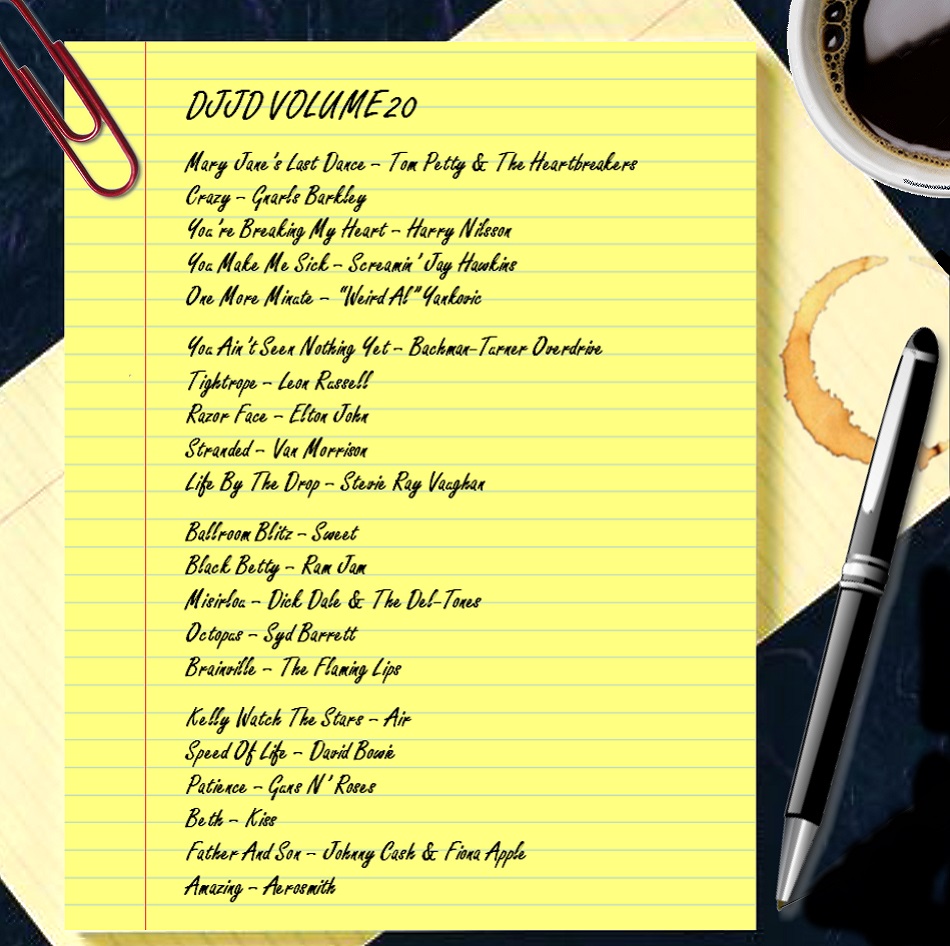 DJJD VOLUME 20
Mary Jane's Last Dance – Tom Petty & The Heartbreakers
Crazy – Gnarls Barkley
You're Breaking My Heart – Harry Nilsson
You Make Me Sick – Screamin' Jay Hawkins
One More Minute – "Weird Al" Yankovic
You Ain't Seen Nothing Yet – Bachman-Turner Overdrive
Tightrope – Leon Russell
Razor Face – Elton John
Stranded – Van Morrison
Life By The Drop – Stevie Ray Vaughan
Ballroom Blitz – Sweet
Black Betty – Ram Jam
Misirlou – Dick Dale & The Del-Tones
Octopus – Syd Barrett
Brainville – The Flaming Lips
Kelly Watch The Stars – Air
Speed Of Life – David Bowie
Patience – Guns N' Roses
Beth – Kiss
Father And Son – Johnny Cash & Fiona Apple
Amazing – Aerosmith